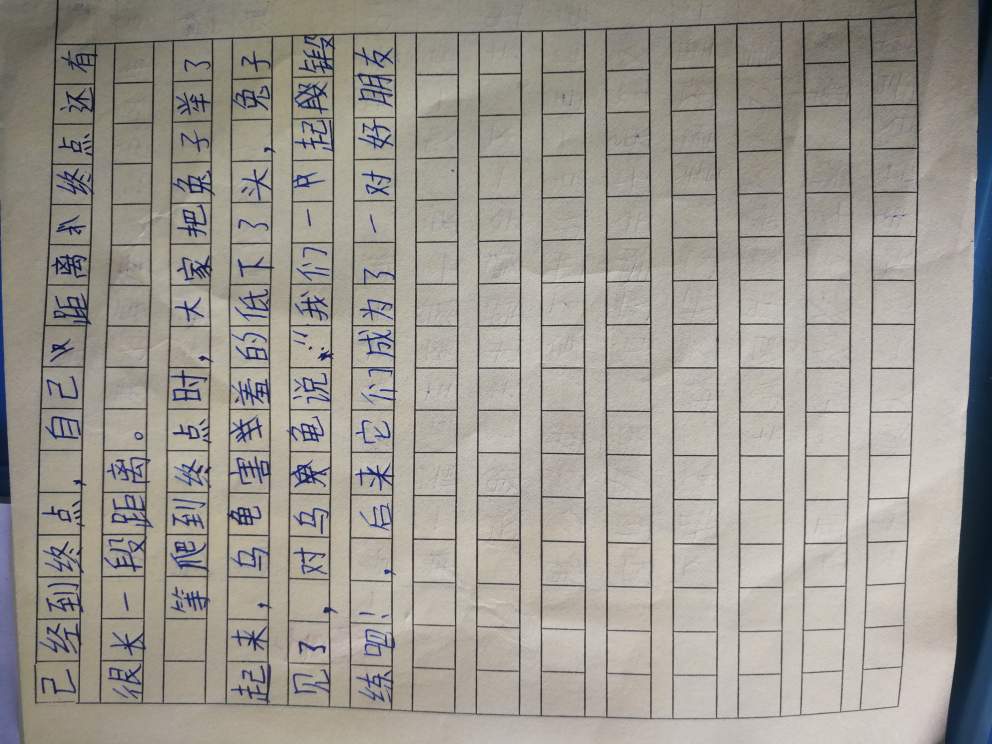 已经到终点，自己距离终点还有
很长一段距离。
等爬到终点时，大家把兔子举了
起来，乌龟害羞的低下了头，兔子
见了，对乌龟说：“我们一起段锻
练吧！，后来它们成为了一对好朋友